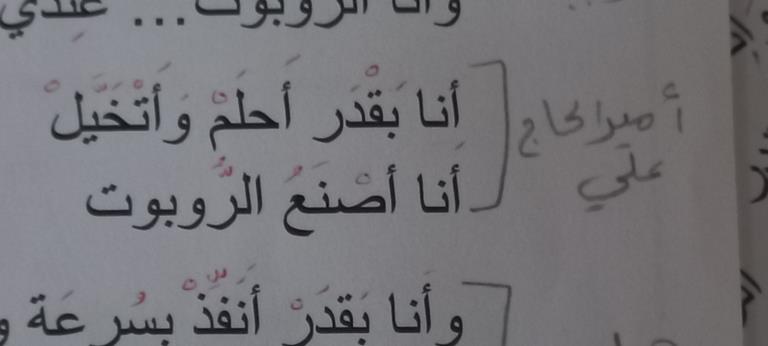 وأنا الروبوت... عندي
أنا بَقْدَر أَحلَمْ وَأَتْخَيَّلْ
أنا أصْنَعُ الرُّوبوت
أميرالحاج
علي
وأنا بَقْدَرْ أَنَفِّذْ بسُرعَة و